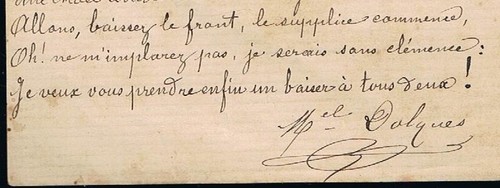 Allons, baissez le front, le supplice commence,
Oh! ne m'implorez pas, je serais sans clémence:
Je veux vous prendre enfin un baiser à tous deux!
Mel Dolques